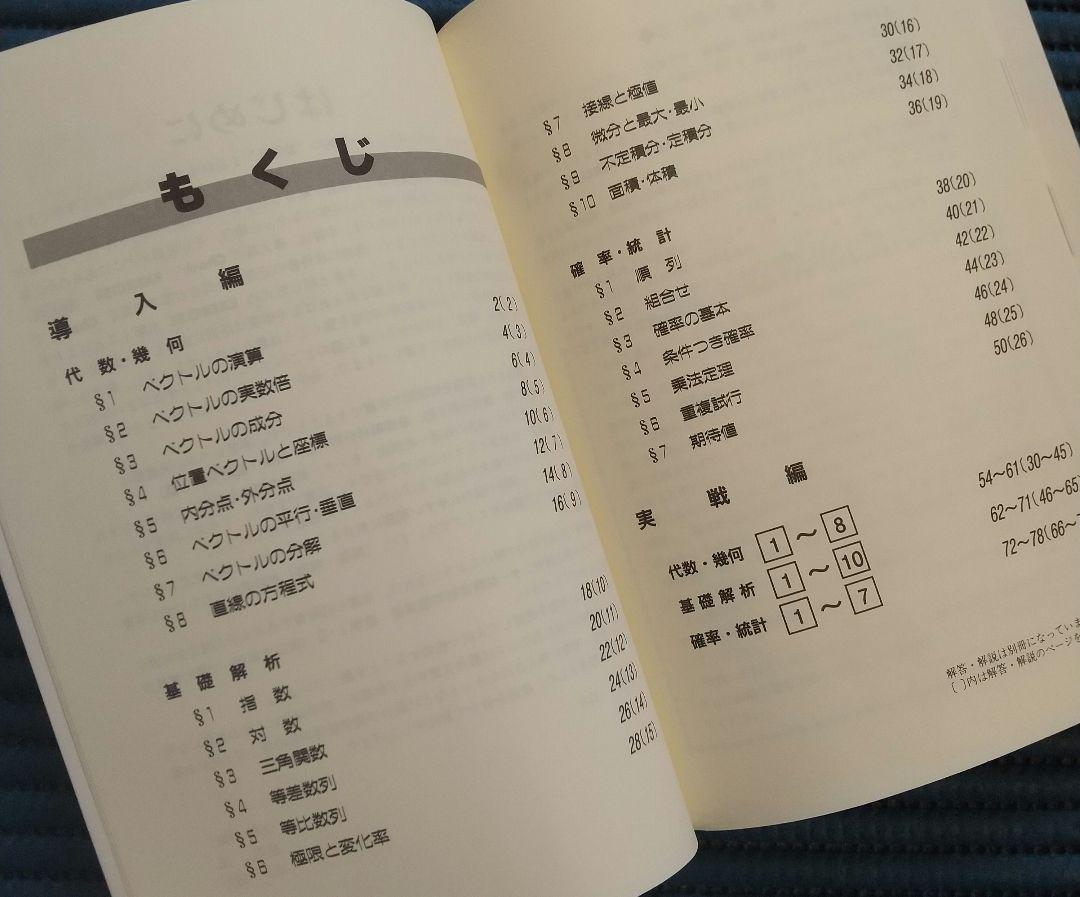 もくじ
導入編
代数・幾何
§1 ベクトルの演算 2(2)
§2 ベクトルの実数倍 4(3)
§3 ベクトルの成分 6(4)
§4 位置ベクトルと座標 8(5)
§5 内分点・外分点 10(6)
§6 ベクトルの平行・垂直 12(7)
§7 ベクトルの分解 14(8)
§8 直線の方程式 16(9)
基礎解析
§1 指数 18(10)
§2 対数 20(11)
§3 三角関数 22(12)
§4 等差数列 24(13)
§5 等比数列 26(14)
§6 極限と変化率 28(15)
§7 接線と極値 30(16)
§8 微分と最大・最小 32(17)
§9 不定積分・定積分 34(18)
§10 面積・体積 36(19)
確率・統計
§1 順列 38(20)
§2 組合せ 40(21)
§3 確率の基本 42(22)
§4 条件つき確率 44(23)
§5 乗法定理 46(24)
§6 重複試行 48(25)
§7 期待値 50(26)
実戦編
代数・幾何 1～8 54～61(30～45)
基礎解析 1～10 62～71(46～65)
確率・統計 1～7 72～78(66～7
解答・解説は別冊になっていま
( )内は解答・解説のページを